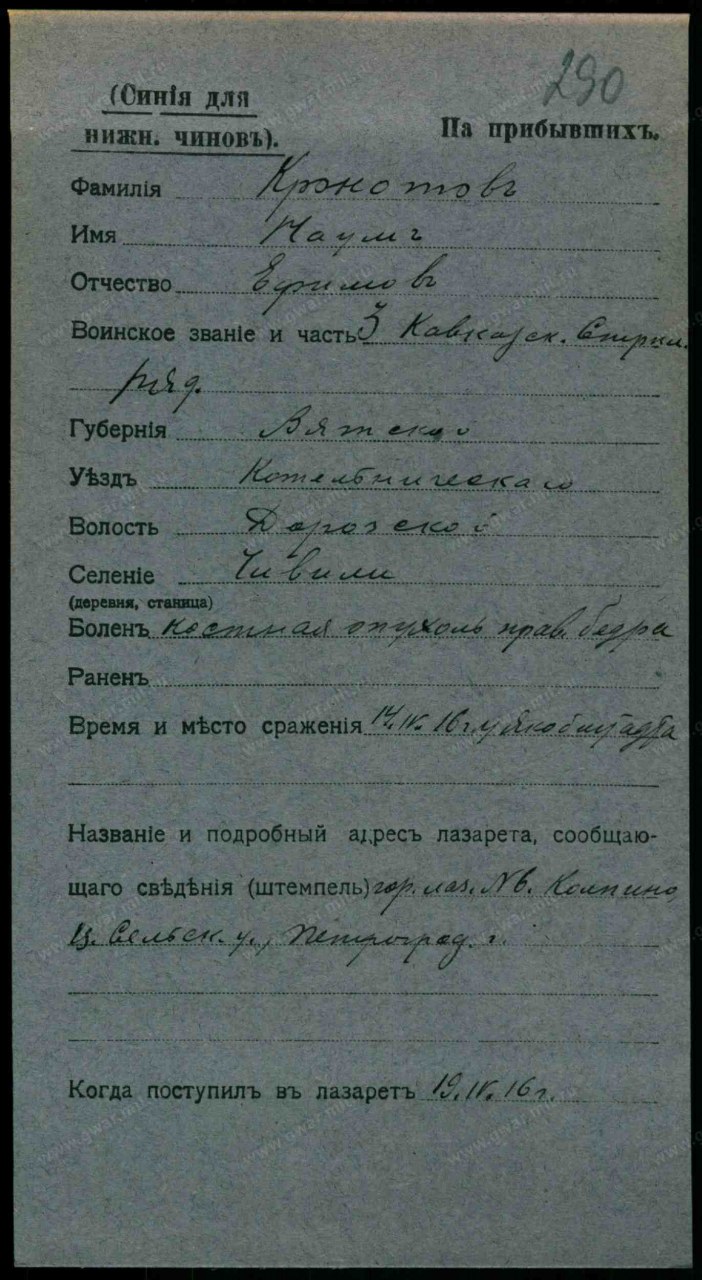 290
(Синія для
нижн. чиновъ).
На прибывшихъ.
Фамилія
Имя Наумъ
Отчество Ефимовъ
Воинское званіе и часть 3 Кавказск. Стрѣл.
ряд.
Губернія Вятской
Уѣздъ Котельническаго
Волость
Селеніе Чивили
(деревня, станица)
Боленъ костная опухоль прав. бедра
Раненъ
Время и мѣсто сраженія 14.IV.16 г. у Якобштадта
Названіе и подробный адресъ лазарета, сообщаю-
щаго свѣдѣнія (штемпель) гор. лаз. №6. Колпино,
Ц. Сельск. у., Петроград. г.
Когда поступилъ въ лазаретъ 19.IV.16 г.